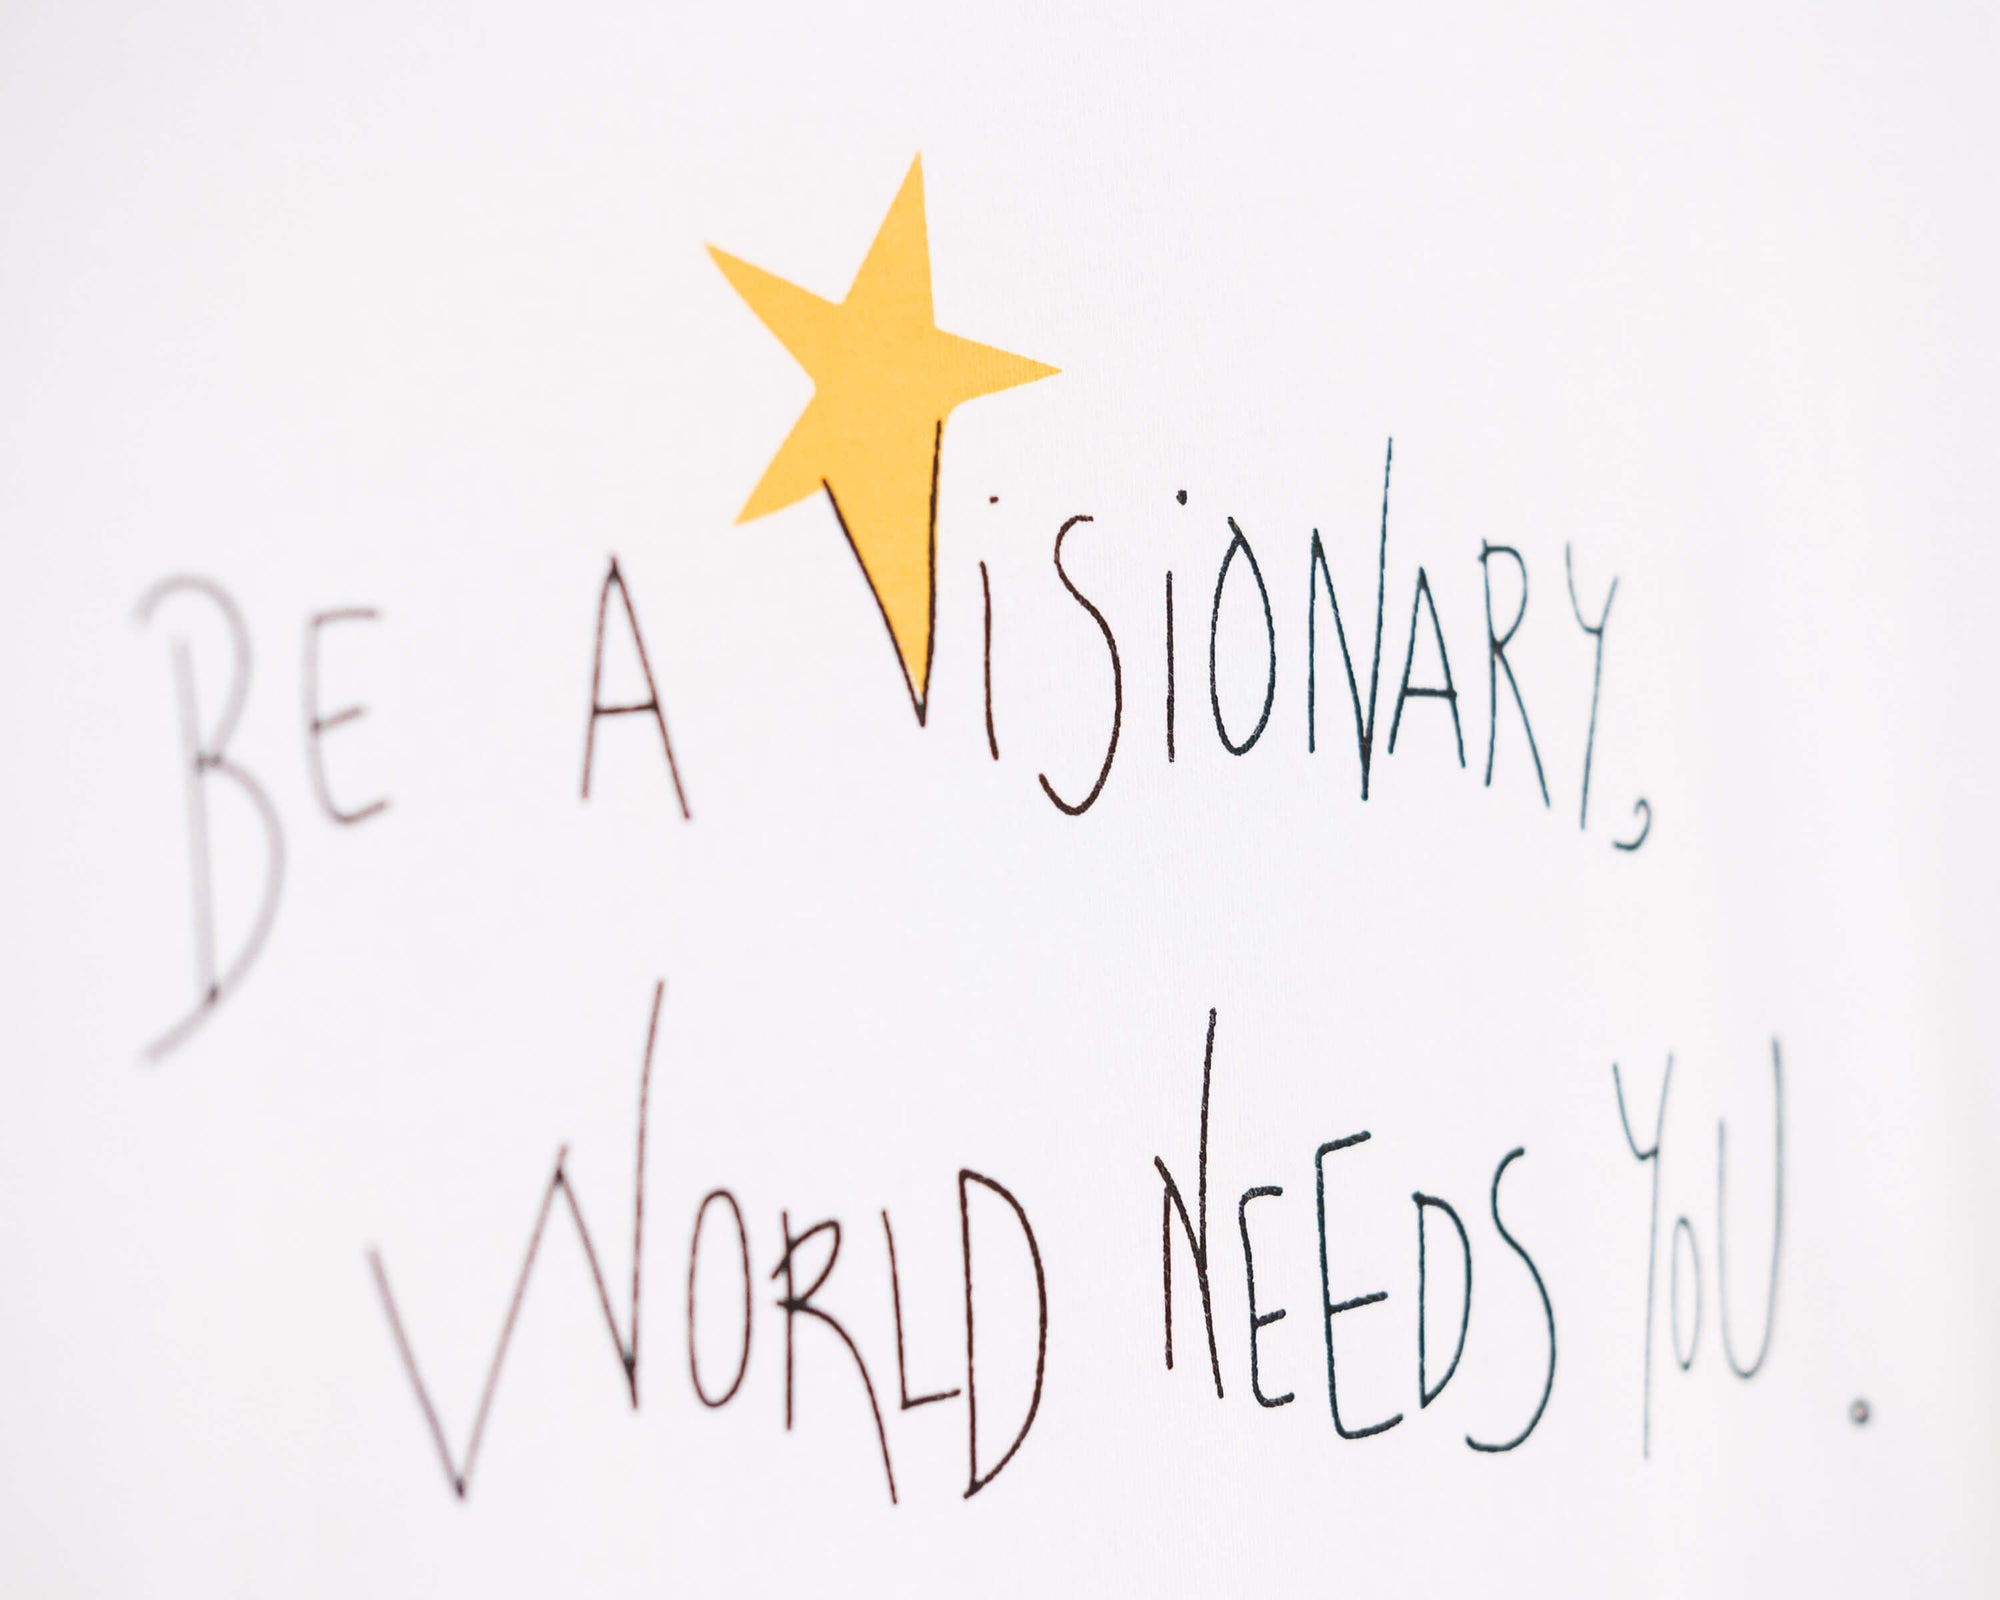 BE A ViSiONARY,
WORLD NEEDS YOU.